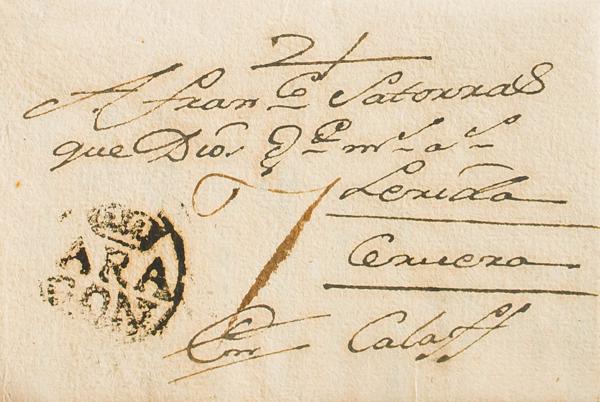 A Fran.co Satorras
que Dios g.e m.s a.s
Lerida
7
Cervera
ARA
GON
En Calaff